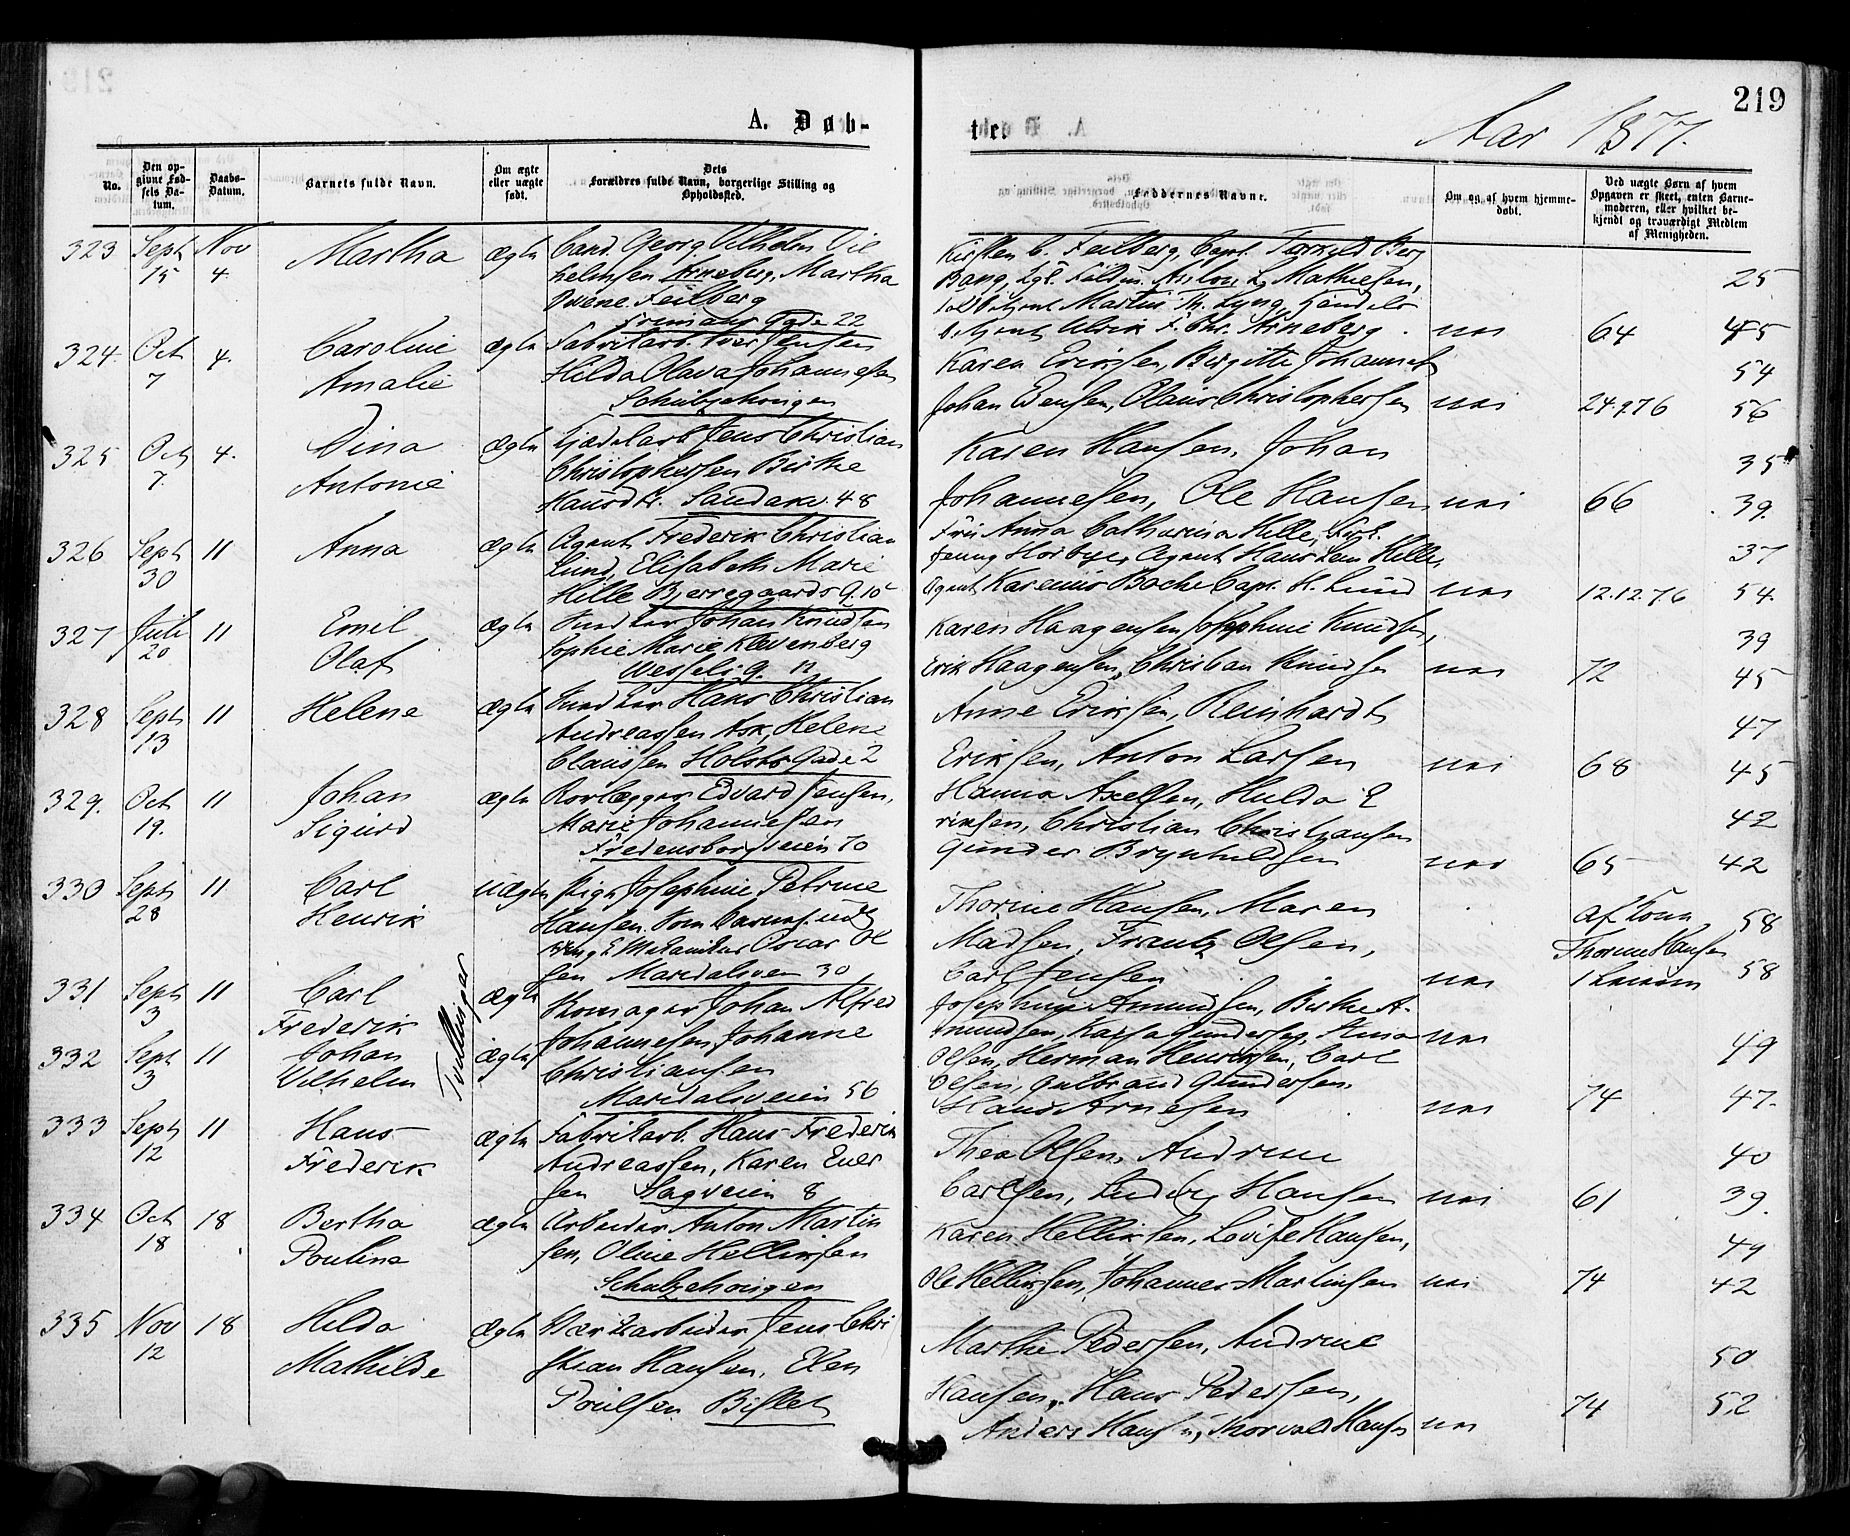 219
A. Døb-
te.
Aar 1877.
No.
Den op-
givne Fød-
sels Da-
tum.
Daabs-
Datum.
Barnets fulde Navn.
Om ægte
eller uægte
født.
Dets
Forældres fulde Navn, borgerlige Stilling og
Opholdssted.
Faddernes Navne.
Om og af hvem hjemme-
døbt.
Ved uægte Børn af hvem
Opgaven er skeet, enten Barne-
moderen, eller hvilket be-
kjendt og troværdigt Medlem
af Menigheden.
323 Sept 15 Nov 4. Martha ægte
Cand. Georg Vilhelm Vil
helmsen Arneberg, Martha
Irene Feilberg
22
Kirsten C. Feilberg, Capt. Torkild Berg
Bang, Anton L. Mathiesen,
Martin Th. Lyng, Handels
betjent Ulrik F. Chr. Arneberg.
nei 64 25 45
324. Oct 7 4. Caroline
Amalie ægte
Fabrikarb. Iver Jensen
Hilda Olava Johannesen
Schultzehougen
Karen Eriksen, Birgitte Johannes
Johan Evensen, Olaus Christophersen nei 24.9.76 54 56
325 Oct 7. 4. Dina
Antonie ægte
Jens Christian
Christophersen Birthe
Hansdtr. Sandakv. 48
Karen Hansen, Johan
Johannesen, Ole Hansen nei 66 35 39.
326 Sept 30 11 Anna ægte
Agent Frederik Christian
Lund, Elisabeth Marie
Hille Bjerregaards G. 10
Anna Catharina Hille,
Agent Hans Lem Hille,
Agent Karenius Boche Capt. H. Lund nei 12.12.76 37 54.
327 Juli 20 11 Emil
Olaf ægte
Snedker Johan Knudsen
Sophie Marie Klevenberg
Wessels G. 12
Karen Haagensen Josephine Knudsen,
Erik Haagensen, Christian Knudsen nei 72 39 45
328 Sept 13 11 Helene ægte
Snedker Hans Christian
Andreassen Ask, Helene
Claussen Holsts Gade 2
Anne Eriksen, Reinhardt
Eriksen, Anton Larsen nei 68 47 45
329. Oct 19. 11 Johan
Sigurd ægte
Rørlægger Edvard Jensen,
Marie Johannesen
Fredensborgveien 70
Hanna Axelsen, Hulda E
riksen, Christian Christiansen
Gunder Brynhildsen nei 65 42 42
330 Sept 28 11 Carl
Henrik uægte
Pige Josephine Petrine
Hansen. Som Barnef. udl
Mekaniker Oscar Ol
sen Maridalsveien 30
Thorine Hansen, Maren
Madsen, Frantz Olsen,
Carl Jensen nei
af Kone
Thorine Hansen
58 58
331 Sept 3 11 Carl
Frederik ægte
332 Sept 3 11 Johan
Vilhelm ægte
Tvillinger
Skomager Johan Alfred
Johannesen, Johanne
Christiansen
Maridalsveien 56
Josephine Amundsen, Birthe A-
mundsen, Kaja Gundersen, Anna nei
Olsen, Herman Henriksen, Carl
Olsen, Gulbrand Gundersen.
Hans Arnesen nei 74 49 47.
333 Sept 12 11 Hans
Frederik ægte
Fabrikarb. Hans Frederik
Andreassen, Karen Ever
sen Sagveien 8
Thea Olsen, Andrine
Carlsen, Ludvig Hansen nei 61 40 39.
334 Oct 18 18 Bertha
Pouline ægte
Arbeider Anton Martin
sen, Oline Helliksen
Schultzehougen
Karen Helliksen, Lovise Hansen,
Ole Helliksen, Johannes Martinsen nei 74 49 42
335 Nov 12 18 Hilda
Mathilde ægte
Værkarbeider Jens Chri
stian Hansen, Elen
Poulsen Bislet
Marthe Pedersen, Andrine
Hansen, Hans Pedersen,
Anders Hansen, Thorvald Hansen nei 74 50 52